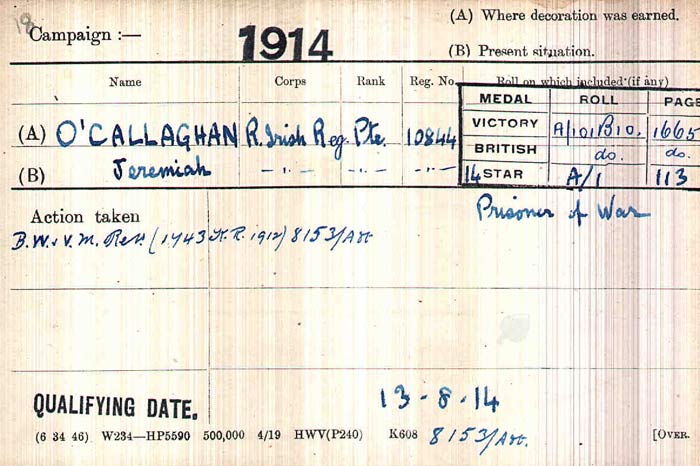 (A) Where decoration was earned.
Campaign :— 1914
(B) Present situation.
Name Corps Rank Reg. No. Roll on which included (if any)
MEDAL ROLL PAGE
(A) O'CALLAGHAN R. Irish Reg. Pte. 10844
VICTORY A/101B10. 1665
BRITISH do. do.
(B) Jeremiah —"— —"— —"—
14 STAR A/1 113
Action taken
Prisoner of War
B.W. & V.M. Ret (1743 K.R. 1912) 8153/Adt
QUALIFYING DATE. 13-8-14
(6 34 46) W234—HP5590 500,000 4/19 HWV(P240) K608 8153/Adt. [OVER.